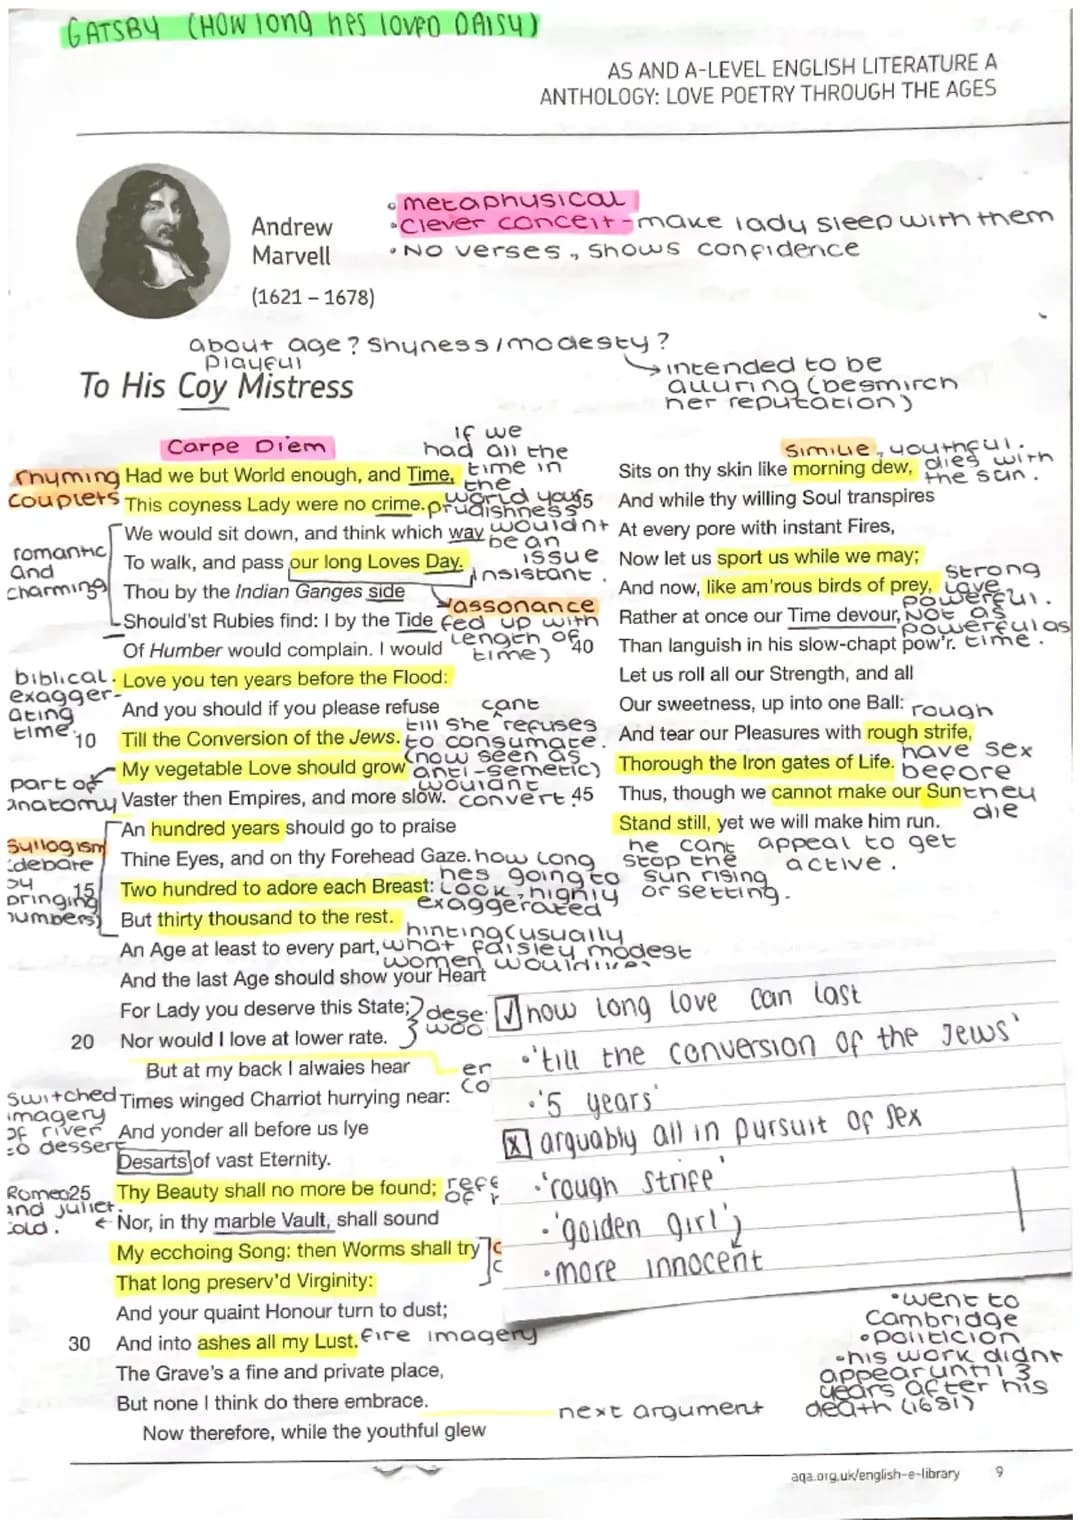 GATSBY (HOW long hes loved DAISY)
AS AND A-LEVEL ENGLISH LITERATURE A
ANTHOLOGY: LOVE POETRY THROUGH THE AGES
Andrew
Marvell
(1621 – 1678)
• metaphysical
• Clever conceit - make lady sleep with them
• No verses, shows confidence
about age? Shyness/modesty?
Playful
→ intended to be
alluring (besmirch
her reputation)
To His Coy Mistress
Carpe Diem
if we
had all the
time in
the
world your
prudishness
wouldnt
be an
issue
insistant.
Rhyming
couplets
Had we but World enough, and Time,
This coyness Lady were no crime.
We would sit down, and think which way
To walk, and pass our long Loves Day.
Thou by the Indian Ganges side
Should'st Rubies find: I by the Tide
Of Humber would complain. I would
romantic
and
charming
assonance
fed up with
length of
time)
biblical.
exagger-
ating
time.
Love you ten years before the Flood:
And you should if you please refuse
10 Till the Conversion of the Jews.
My vegetable Love should grow
Vaster then Empires, and more slow.
cant
till she refuses
to consumate.
(now seen as
anti-semetic)
wouldnt
convert.
part of
anatomy
An hundred years should go to praise
Thine Eyes, and on thy Forehead Gaze.
15 Two hundred to adore each Breast:
But thirty thousand to the rest.
Syllogism
(debate
by
bringing
numbers)
how long
hes going to
look, highly
exaggerated
An Age at least to every part,
And the last Age should show your Heart
For Lady you deserve this State;
20 Nor would I love at lower rate.
hinting (usually
what paisley modest
women
But at my back I alwaies hear
Times winged Charriot hurrying near:
And yonder all before us lye
Desarts of vast Eternity.
switched
imagery
of river
to dessert
25 Thy Beauty shall no more be found;
Nor, in thy marble Vault, shall sound
My ecchoing Song: then Worms shall try
That long preserv'd Virginity:
And your quaint Honour turn to dust;
30 And into ashes all my Lust.
fire imagery
The Grave's a fine and private place,
But none I think do there embrace.
Now therefore, while the youthful glew
Romeo
and Juliet.
cold.
next argument
Similie, youthful.
dies with
the sun.
Sits on thy skin like morning dew,
35 And while thy willing Soul transpires
At every pore with instant Fires,
Now let us sport us while we may;
And now, like am'rous birds of prey,
Rather at once our Time devour,
40 Than languish in his slow-chapt pow'r.
Strong
Love
powerful.
Not as
powerful as
time.
Let us roll all our Strength, and all
Our sweetness, up into one Ball:
And tear our Pleasures with rough strife,
Thorough the Iron gates of Life.
45 Thus, though we cannot make our Sun
Stand still, yet we will make him run.
rough
have sex
before
they
die
he cant
stop the
sun rising
or setting.
appeal to get
active.
☑ how long love can last
• 'till the conversion of the Jews'
• '5 years'
☒ arguably all in pursuit of sex
• 'rough strife'
• 'golden girl'
• more innocent
• went to
Cambridge
• politicion
• his work didnt
appear until 3
years after his
death (1681)
aqa.org.uk/english-e-library 9